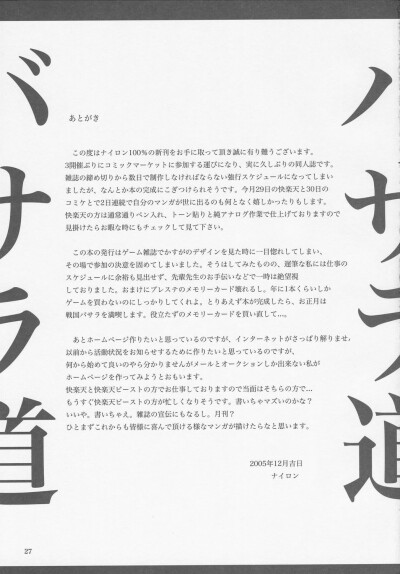 バサラ道
バサラ道
あとがき
この度はナイロン100%の新刊をお手に取って頂き誠に有り難うございます。
3開催ぶりにコミックマーケットに参加する運びになり、実に久しぶりの同人誌です。
雑誌の締め切りから数日で制作しなければならない強行スケジュールになってしまい
ましたが、なんとか本の完成にこぎつけられそうです。今月29日の快楽天と30日の
コミケとで2日連続で自分のマンガが世に出るのも何となく嬉しかったりもします。
快楽天の方は通常通りペン入れ、トーン貼りと純アナログ作業で仕上げておりますので
見掛けたらお暇な時にもチェックして見て下さい。
この本の発行はゲーム雑誌でかすがのデザインを見た時に一目惚れしてしまい、
その場で参加の決意を固めてしまいました。そうはしてみたものの、遅筆な私には仕事の
スケジュールに余裕も見出せず、先輩先生のお手伝いなどで一時は絶望視
しておりました。おまけにプレステのメモリーカード壊れるし。年に1本くらいしか
ゲームを買わないのにしっかりしてくれよ。とりあえず本が完成したら、お正月は
戦国バサラを満喫します。役立たずのメモリーカードを買い直して…。
あとホームページ作りたいと思っているのですが、インターネットがさっぱり解りません。
以前から活動状況をお知らせするために作りたいと思っているのですが、
何から始めて良いのやら分かりませんがメールとオークションしか出来ない私が
ホームページを作ってみようとおもいます。
快楽天と快楽天ビーストの方でお仕事しておりますので当面はそちらの方で…
もうすぐ快楽天ビーストの方が忙しくなりそうです。書いちゃマズいのかな？
いいや。書いちゃえ。雑誌の宣伝にもなるし。月刊？
ひとまずこれからも皆様に喜んで頂ける様なマンガが描けたらなと思います。
2005年12月吉日
ナイロン
27